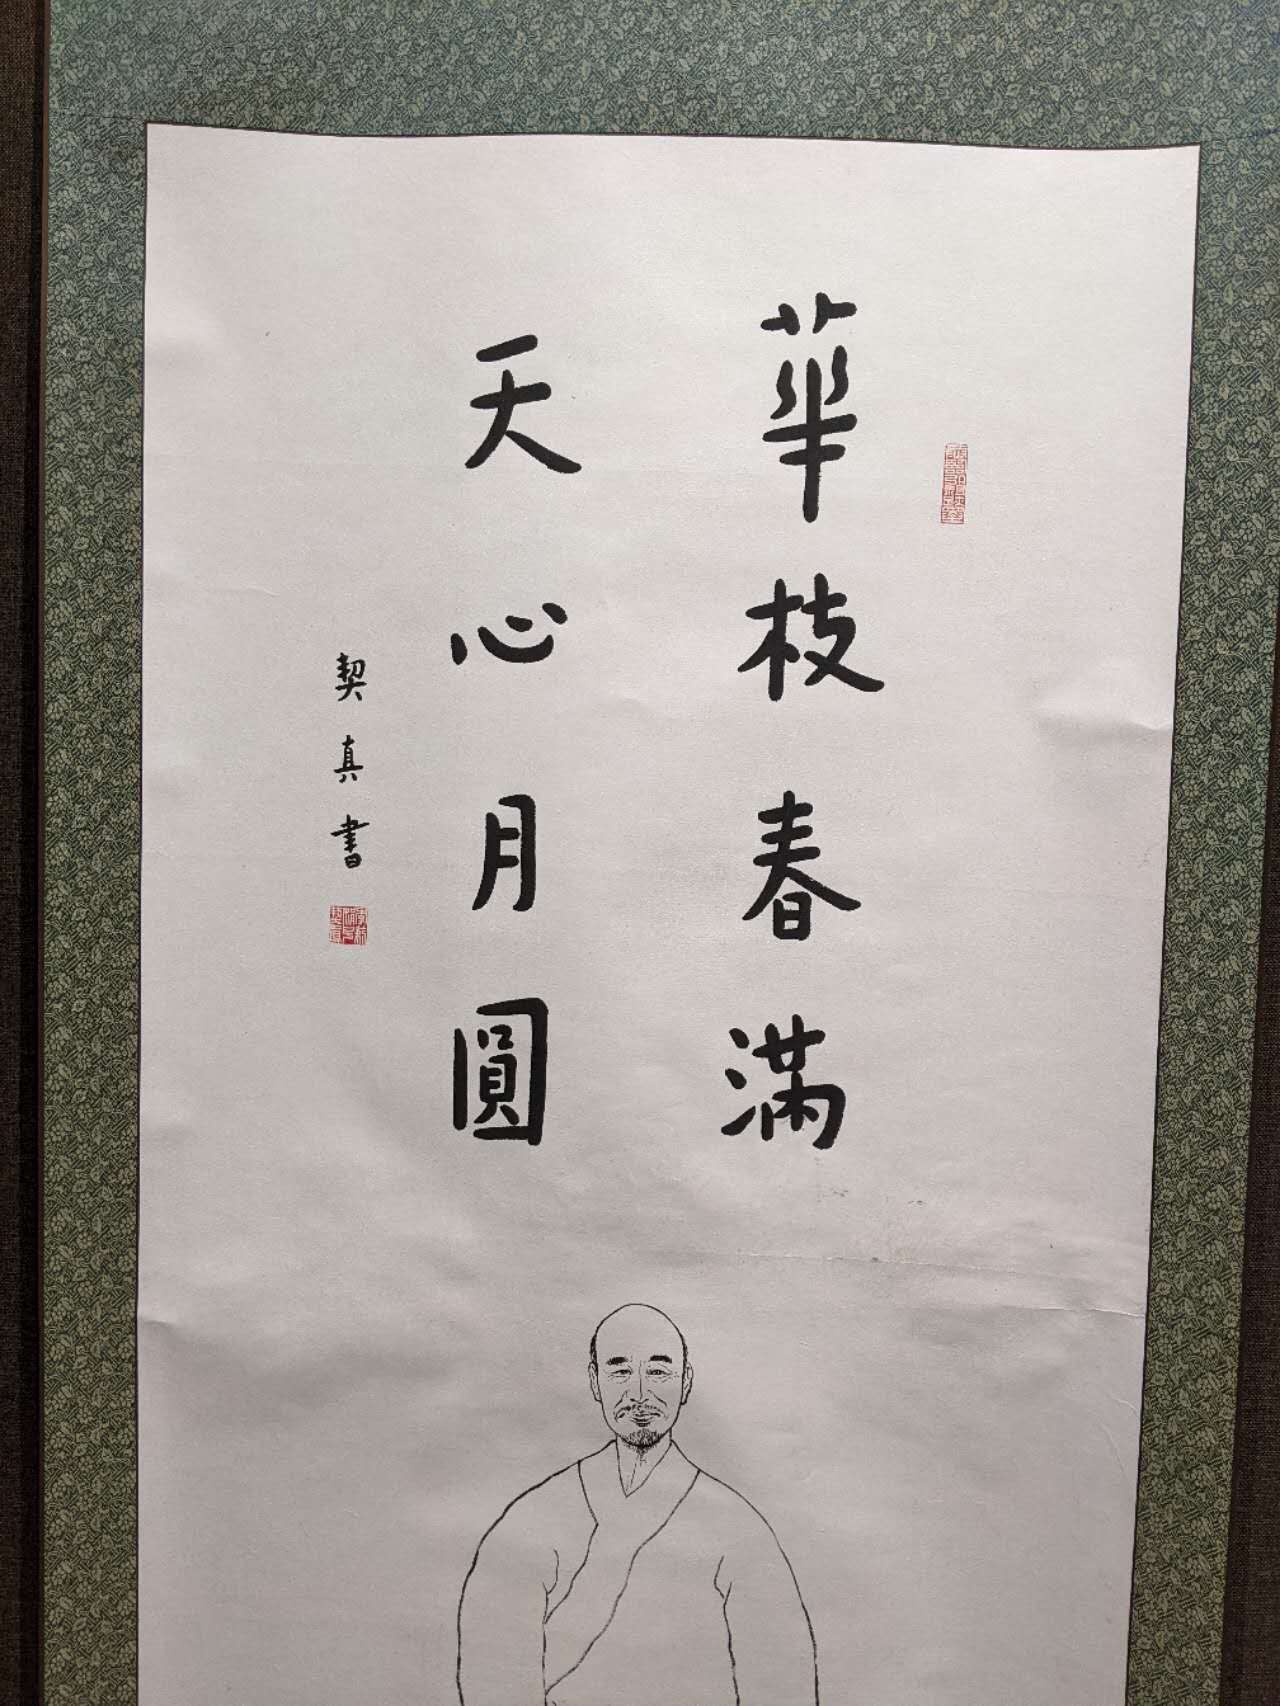 華枝春滿
天心月圓
契真書